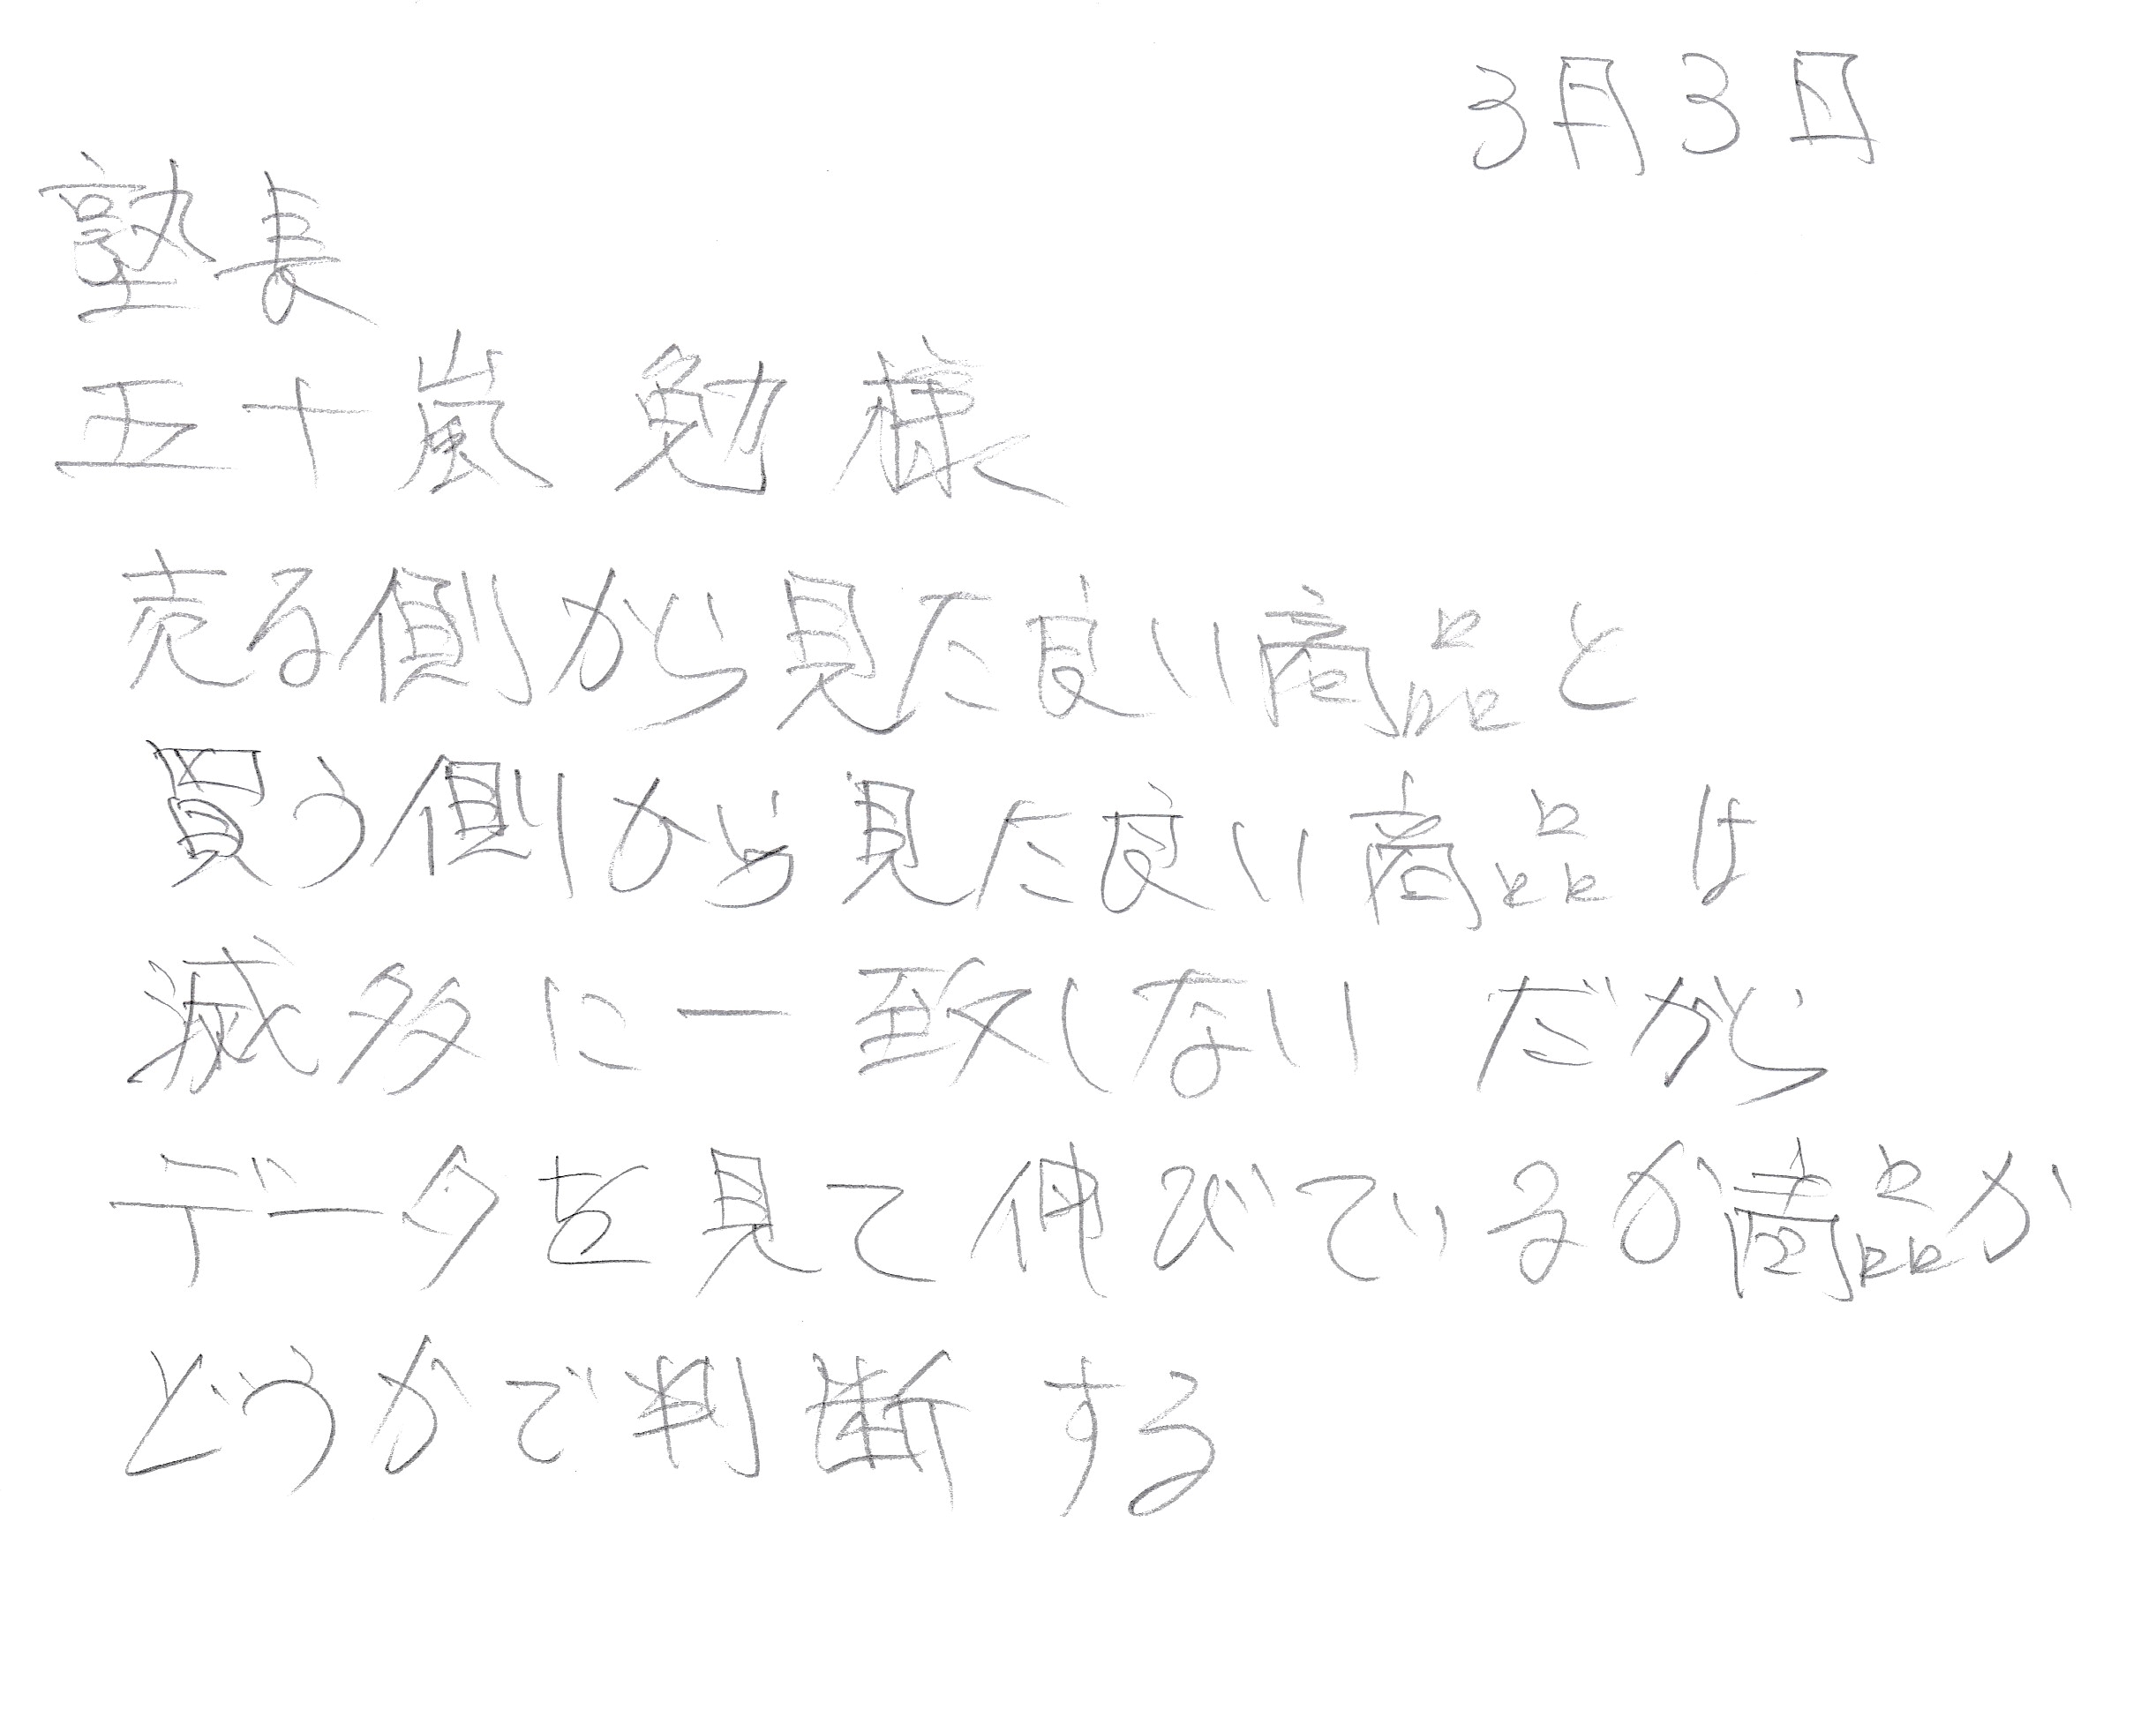 3月3日
塾長
五十嵐 勉 様
売る側から見た良い商品と
買う側から見た良い商品は
滅多に一致しない だから
データを見て伸びているか商品か
どうかで判断する